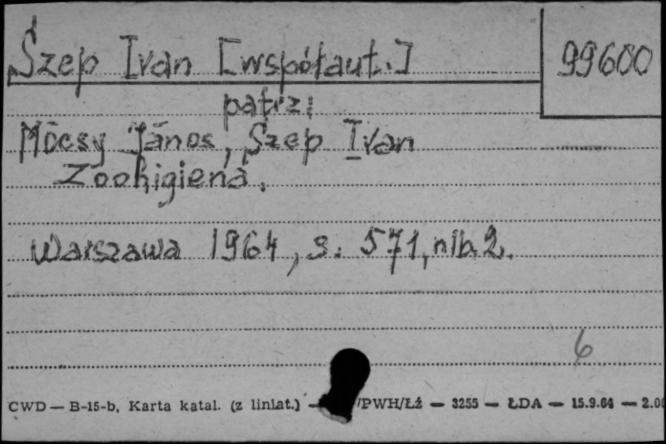 Szep Ivan [współaut.]
99600
patrz:
Mócsy János, Szep Ivan
Zoohigiena.
Warszawa 1964, s. 571, nlb. 2.
6
CWD — B-15-b, Karta katal. (z liniat.) — /PWH/Łź — 3255 — ŁDA — 15.9.64 — 2.00